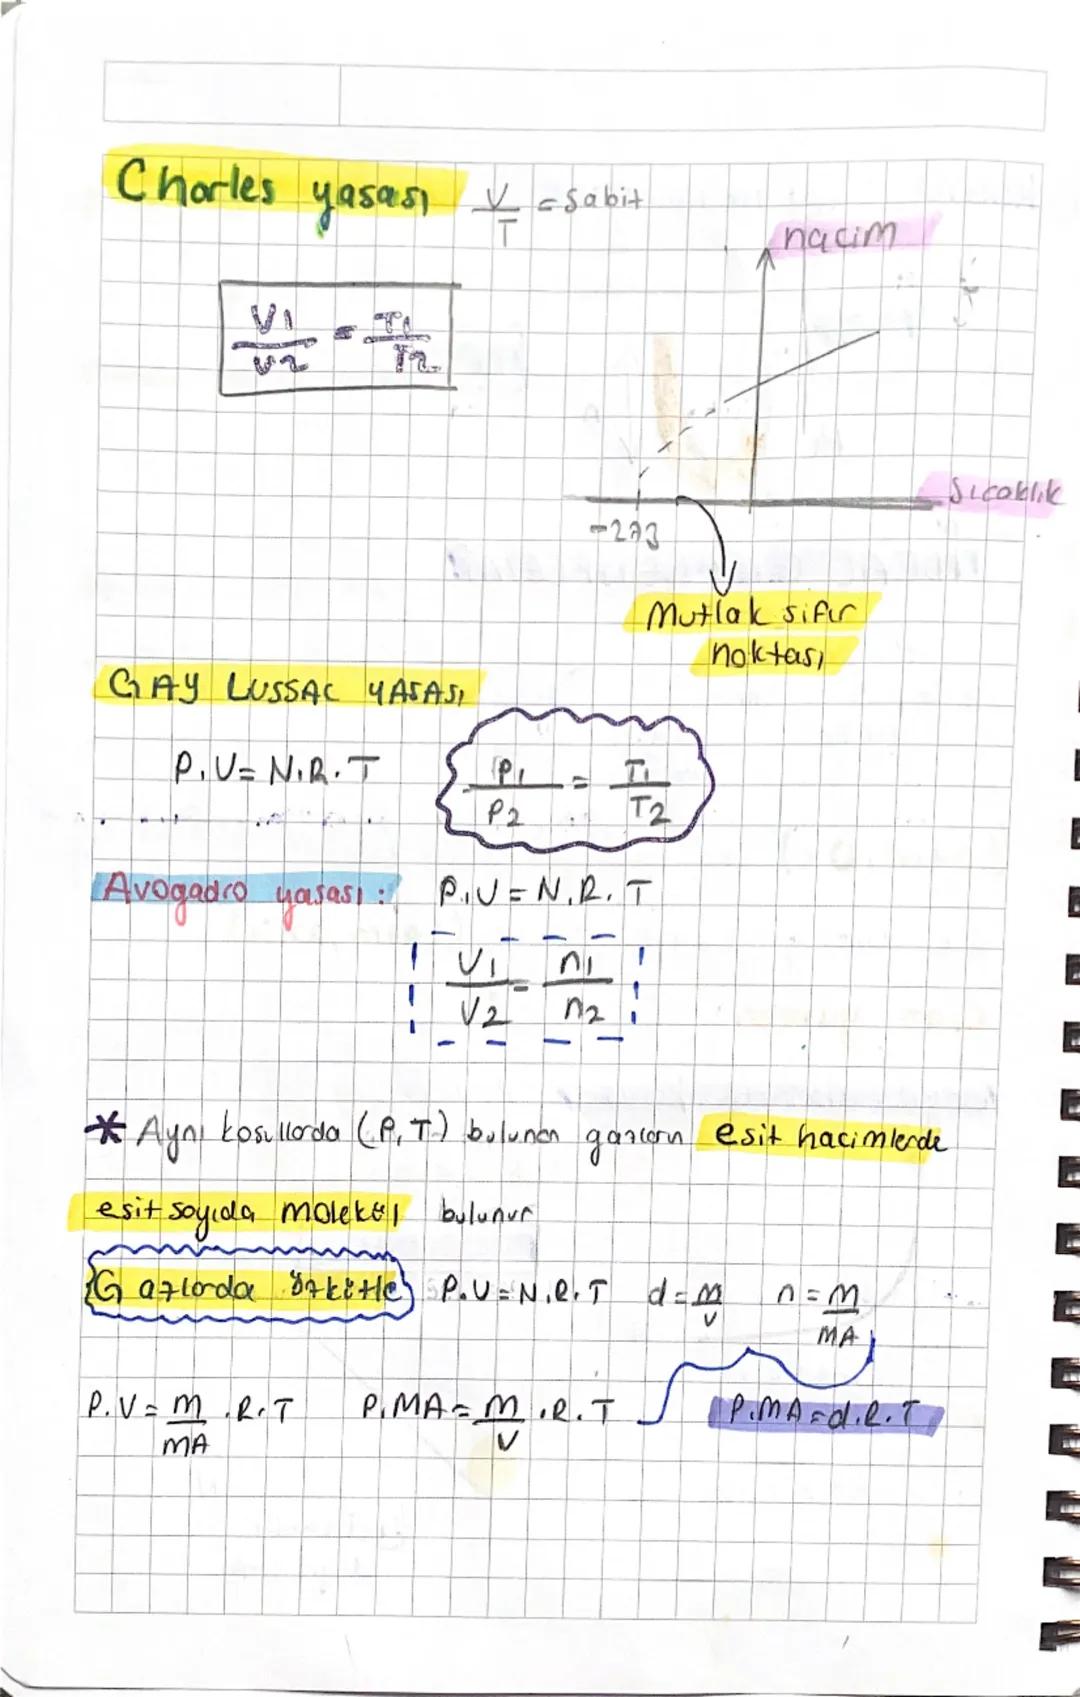 Charles yasası V/T = Sabit
hacim
V1/V2 = T1/T2
Sıcaklık
-273
Mutlak sıfır
noktası
GAY LUSSAC YASASI
P.V = N.R.T P1/P2 = T1/T2
Avogadro yasası: P.V = N.R.T
V1/V2 = n1/n2
* Aynı koşullarda (P,T) bulunan gazların eşit hacimlerde
eşit sayıda molekül bulunur
Gazlarda özkütle P.V = N.R.T d = m/V n = m/MA
P.V = m/MA .R.T P.MA = m/V .R.T P.MA = d.R.T